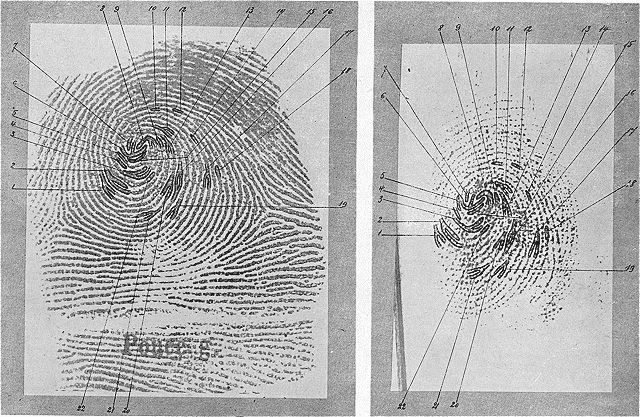 8 9 10 11 12 13 14 15 16
17
18
7
6
5
4
3
2
1
19
Pouce g.
22 21 20
8 9 10 11 12 13 14 15
16
17
18
7
6
5
4
3
2
1
19
22 21 20